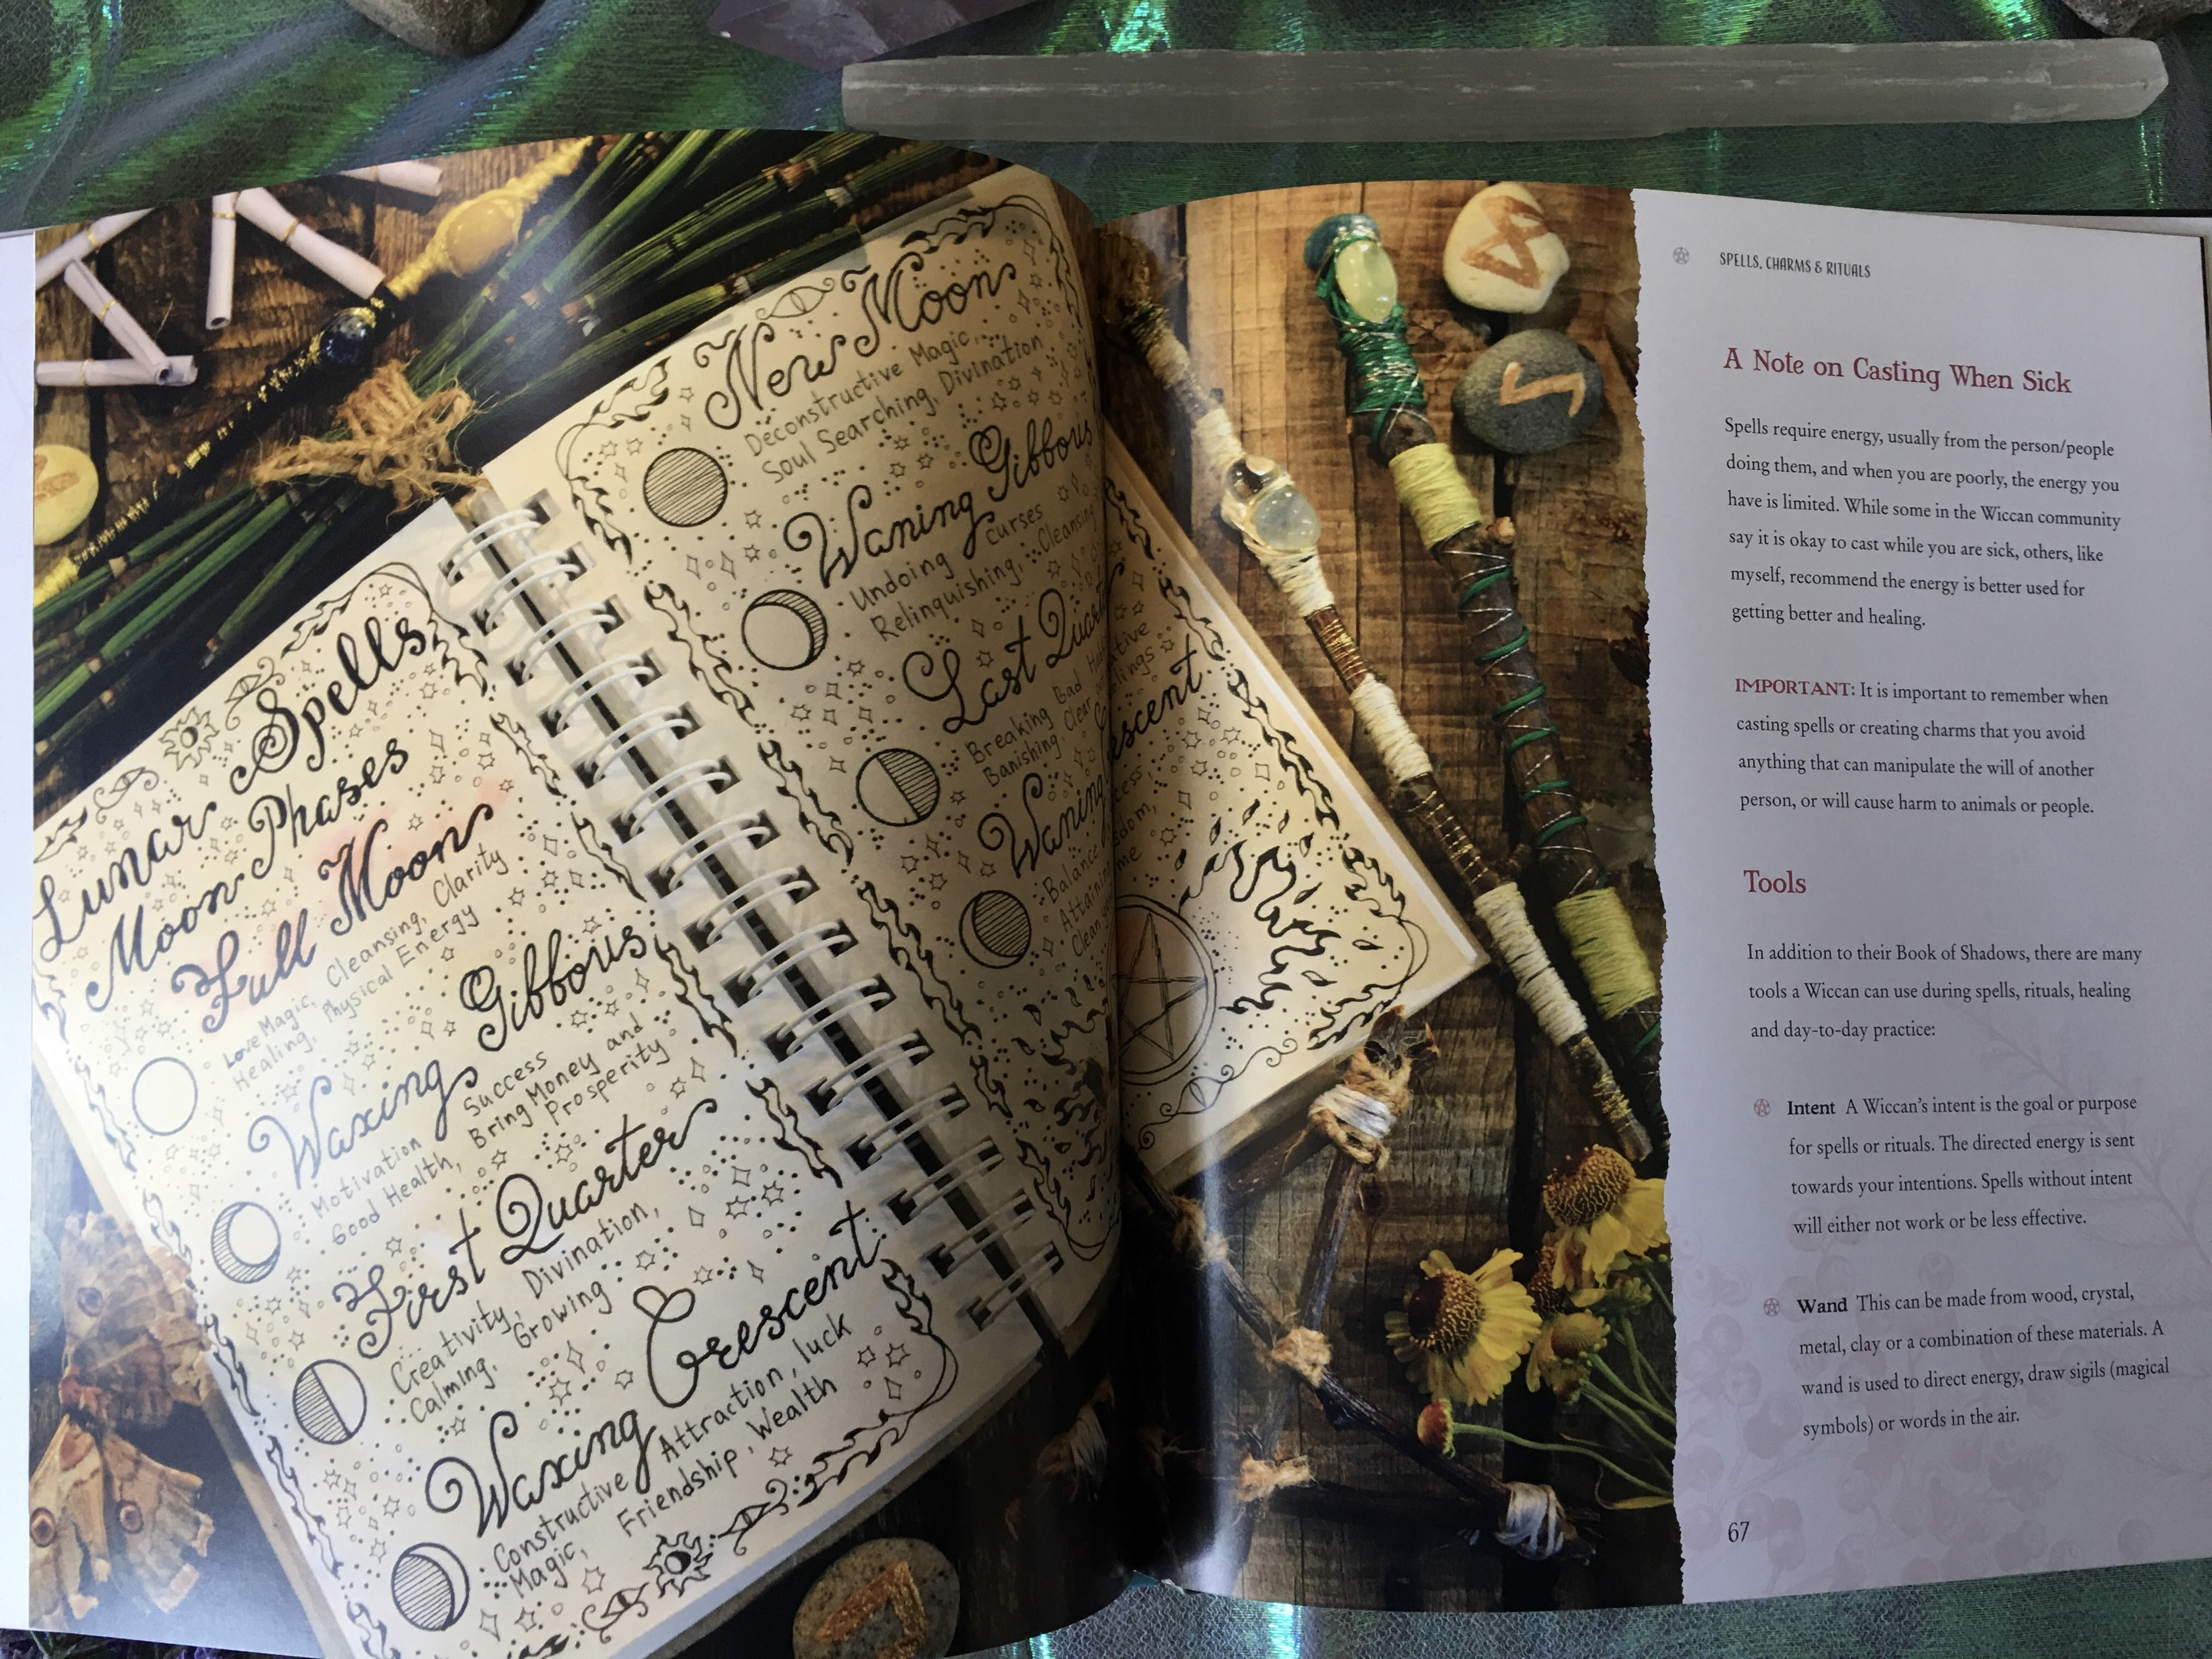 Lunar Spells
Moon Phases
Full Moon
Love Magic, Cleansing, Clarity
Healing, Physical Energy
Waxing Gibbous
Motivation Success
Good Health, Bring Money and
Prosperity
First Quarter
Creativity, Divination,
Calming, Growing
Waxing Crescent
Constructive Attraction, luck
Magic, Friendship, Wealth
New Moon
Deconstructive Magic,
Soul Searching, Divination
Waning Gibbous
Undoing curses
Relinquishing, Cleansing
Last
Breaking Bad
Banishing Clear
Waning
Balance
SPELLS, CHARMS & RITUALS
A Note on Casting When Sick
Spells require energy, usually from the person/people
doing them, and when you are poorly, the energy you
have is limited. While some in the Wiccan community
say it is okay to cast while you are sick, others, like
myself, recommend the energy is better used for
getting better and healing.
IMPORTANT: It is important to remember when
casting spells or creating charms that you avoid
anything that can manipulate the will of another
person, or will cause harm to animals or people.
Tools
In addition to their Book of Shadows, there are many
tools a Wiccan can use during spells, rituals, healing
and day-to-day practice:
Intent A Wiccan's intent is the goal or purpose
for spells or rituals. The directed energy is sent
towards your intentions. Spells without intent
will either not work or be less effective.
Wand This can be made from wood, crystal,
metal, clay or a combination of these materials. A
wand is used to direct energy, draw sigils (magical
symbols) or words in the air.
67